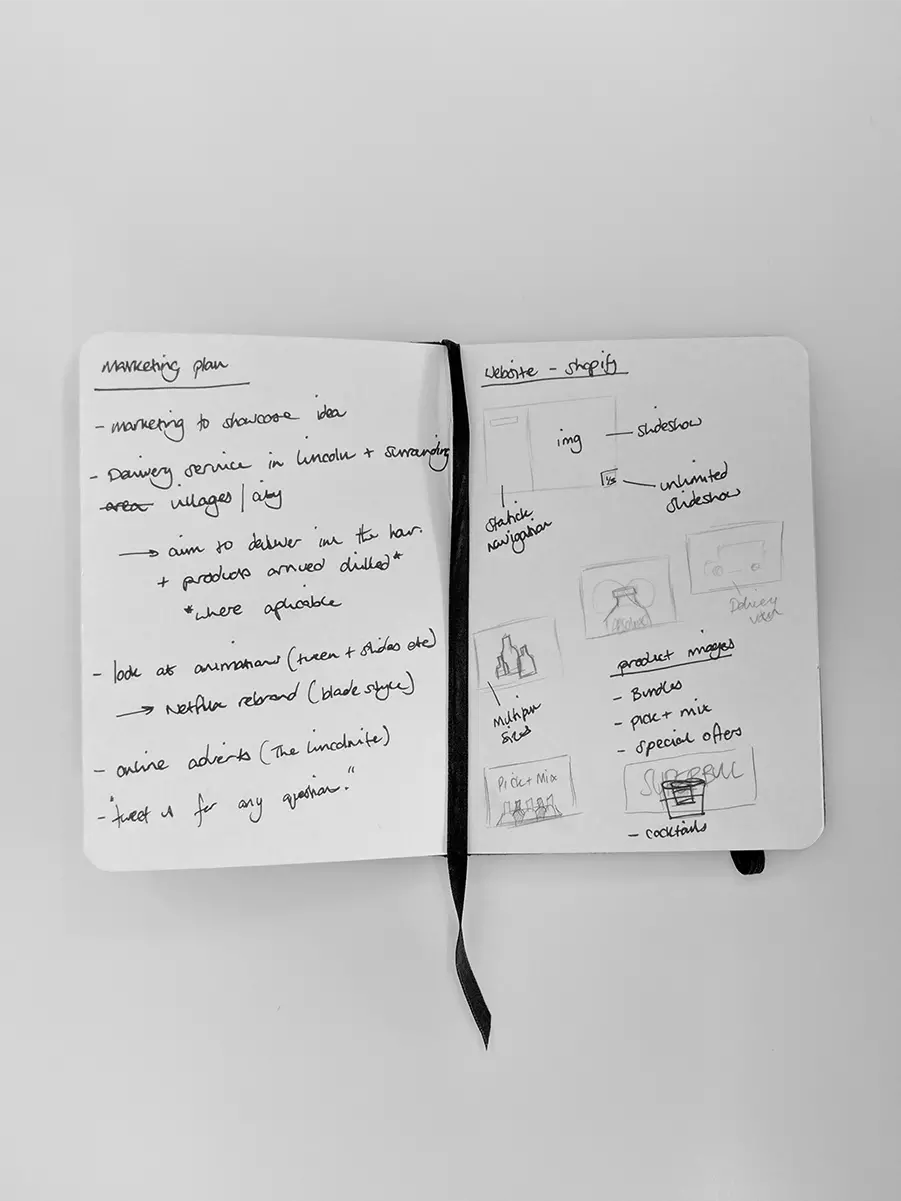 Marketing plan
- marketing to showcase idea
- Delivery service in Lincoln + surrounding
area villages / city
→ aim to deliver in the hour.
+ products arrived chilled*
*where aplicable
- look at animations (tween + slides etc)
→ Netflix rebrand (blade style)
- online adverts (The Lincolnite)
- "tweet us for any question."
website - shopify
img
slideshow
1/5
unlimited
slideshow
static
navigation
Delivery
Multiple
sizes
product images
- Bundles
- pick + mix
- special offers
Pick + Mix
- cocktails